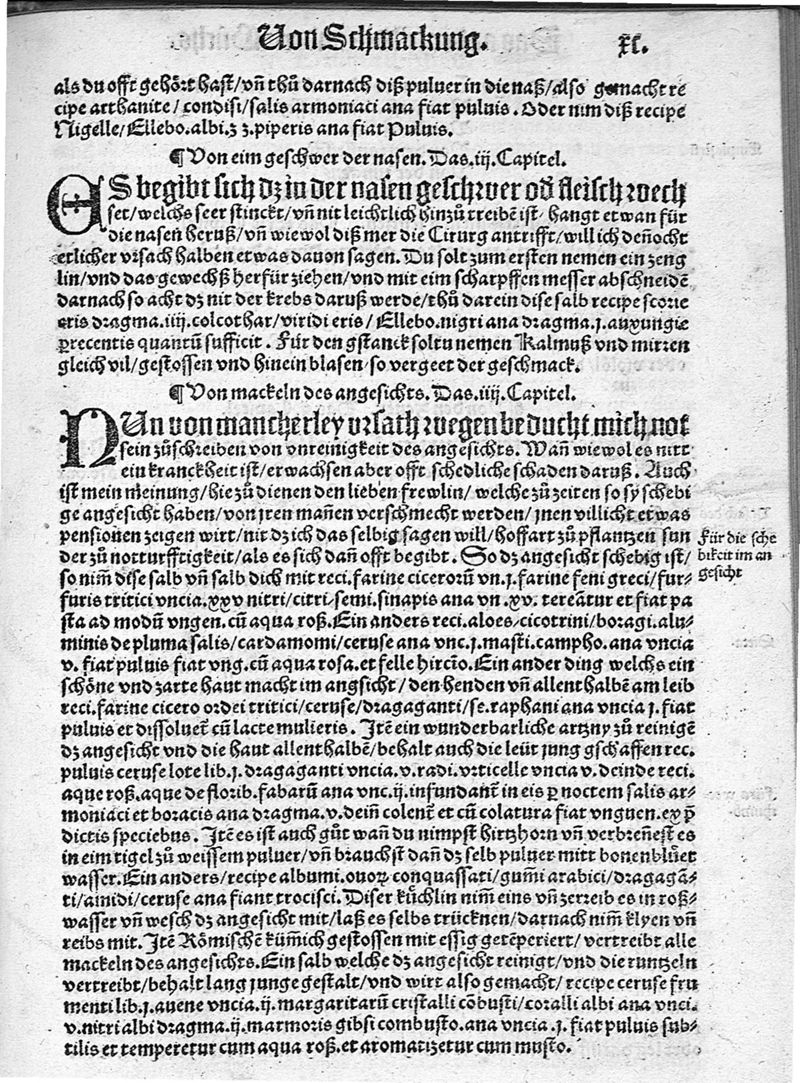 Von Schmackung. xl.
als du offt gehört hast/ vñ thů darnach diß puluer in die naß/ also gemacht re
cipe arthanite/ condisi/ salis armoniaci ana fiat puluis. Oder nim diß recipe
Nigelle/ Ellebo.albi.ʒ ʒ.piperis ana fiat Puluis.
¶ Von eim geschwer der nasen. Das.iij.Capitel.
ES begibt sich dz in der nasen geschwer od̕ fleisch wech
set/ welchs seer stinckt/ vñ nit leichtlich hinzů treibē ist/ hangt etwan für
die nasen heruß/ vñ wiewol diß mer die Cirurg antrifft/ will ich deñocht
etlicher vrsach halben etwas dauon sagen. Du solt zum ersten nemen ein zeng
lin/ vnd das gewechß herfür ziehen/ vnd mit eim scharpffen messer abschneidē
darnach so acht dz nit der krebs daruß werde/ thů darein dise salb recipe scorie
eris dragma.iiij.colcothar/ viridi eris/ Ellebo.nigri ana dragma.j.auxungie
p̄recentis quantū sufficit. Für den gstanck soltu nemen Kalmuß vnd mirren
gleich vil/ gestossen vnd hinein blasen/ so vergeet der geschmack.
¶ Von mackeln des angesichts. Das.iiij.Capitel.
NUn von mancherley vrsach wegen beducht mich not
sein zůschreiben von vnreinigkeit des angesichts. Wañ wiewol es nitt
ein kranckheit ist/ erwachsen aber offt schedliche schaden daruß. Auch
ist mein meinung/ hie zů dienen den lieben frewlin/ welche zů zeiten so sy schebi
ge angesicht haben/ von jren mañen verschmecht werden/ jnen villicht etwas
pensionen zeigen wirt/ nit dz ich das selbig sagen will/ hoffart zů pflantzen sun
der zů notturfftigkeit/ als es sich dañ offt begibt. So dz angesicht schebig ist/
Für die sche
bikeit im an
gesicht
so nim̄ dise salb vñ salb dich mit reci.farine cicerorū vn.j.farine feni greci/ fur-
furis tritici vncia.xxv nitri/ citri.semi.sinapis ana vn.xv. tereātur et fiat pa
sta ad modū vngen. cū aqua roß. Ein anders reci.aloes.cicotrini/ boragi.alu-
minis de pluma salis/ cardamomi/ ceruse ana vnc.j.masti.campho.ana vncia
v. fiat puluis fiat vng. cū aqua rosa.et felle hircño. Ein ander ding welchs ein
schöne vnd zarte haut macht im angsicht/ den henden vñ allenthalbē am leib
reci.farine cicero ordei tritici/ ceruse/ dragaganti/ se.raphani ana vncia j. fiat
puluis et dissoluet̄ cū lacte mulieris. Jtē ein wunderbarliche artzny zů reinigē
dz angesicht vnd die haut allenthalbē/ behalt auch die leüt jung gschaffen rec.
puluis ceruse lote lib.j.dragaganti vncia.v.radi.vrticelle vncia v.deinde reci.
aque roß.aque de florib.fabarū ana vnc.ij.infundant̄ in eis p̄ noctem salis ar-
moniaci et boracis ana dragma.v.deiñ colent̄ et cū colatura fiat vnguen.ex p̄
dictis speciebus. Jtē es ist auch gůt wañ du nimpst hirtzhorn vñ verbreñest es
in eim tigel zů weissem puluer/ vñ brauchst dañ dz selb puluer mitt bonenblůet
wasser. Ein anders/ recipe albumi.ouoꝝ conquassati/ gum̄i arabici/ dragagā-
ti/ amidi/ ceruse ana fiant trocisci. Diser kůchlin nim̄ eins vñ zerreib es in roß-
wasser vñ wesch dz angesicht mit/ laß es selbs trücknen/ darnach nim̄ klyen vñ
reibs mit. Jtē Römischē küm̄ich gestossen mit essig getēperiert/ vertreibt alle
mackeln des angesichts. Ein salb welche dz angesicht reinigt/ vnd die runtzeln
vertreibt/ behalt lang junge gestalt/ vnd wirt also gemacht/ recipe ceruse fru
menti lib.j.auene vncia.ij.margaritarū cristalli cōbusti/ coralli albi ana vnci.
v.nitri albi dragma.ij.marmoris gibsi combusto.ana vncia.j.fiat puluis sub-
tilis et temperetur cum aqua roß.et aromatizetur cum musto.